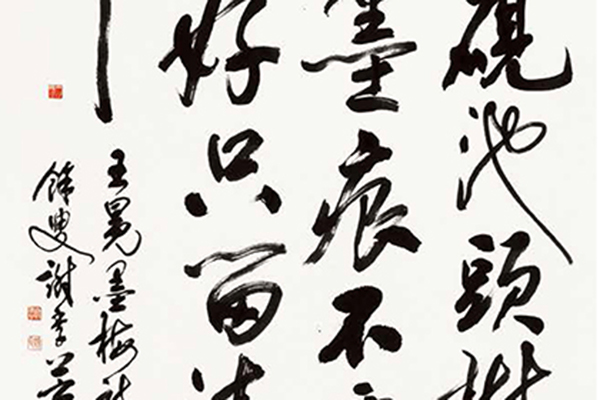 硯池頭樹
墨痕不
好只留清
王冕墨梅詩
叟謝季